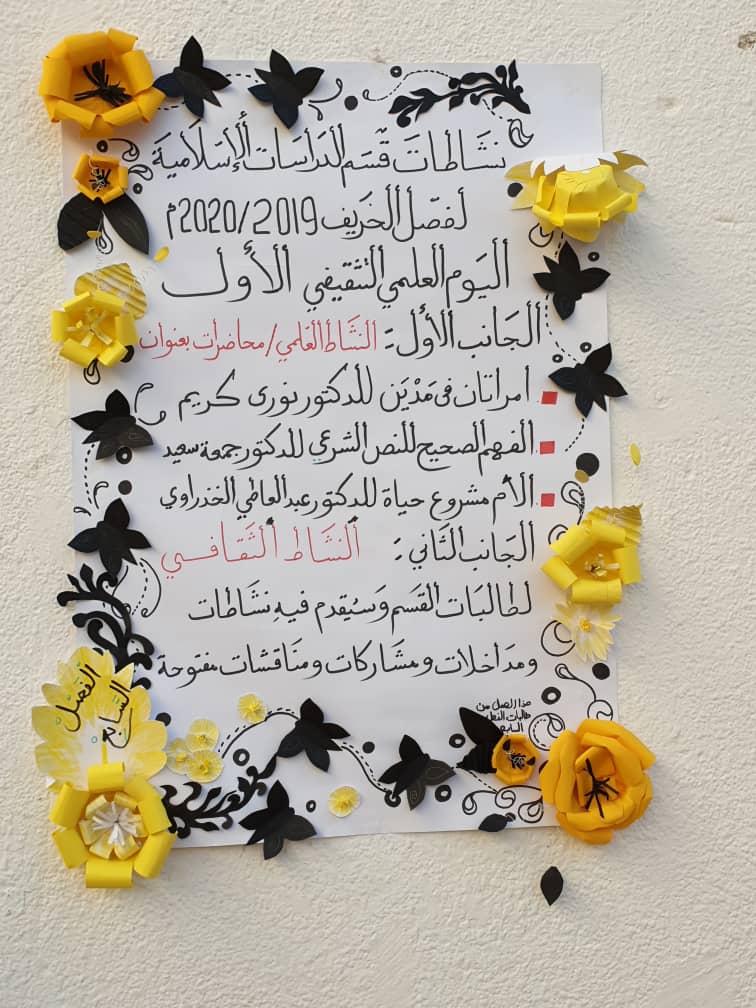 نشَاطاتَ قسَم الدراسات الإسْلَامية
لفصّل الخَريف 2020/2019م
اليَوم العلمي التثقيفي الأول
الجَانب الأول:ـ النشَاط العَلمي/محاضرات بعنوان
امراتان فى مَدْيَن للدكتور نورى كريم
الفهم الصحيح للنص الشرعي للدكتور جمعة سعيد
الأم مشروع حياة للدكتور عبدالعاطي الخذراوي
الجَانب الثَاني:ـ النشَاط الثقافي
لطالبَات القسَم وَسيُقدم فيهِ نشَاطات
ومدَاخلات ومشَاركات ومنَاقشات مفتوحة
هذا العمل من
طالبات الفصل
السابع
الفصّل
السَّابع